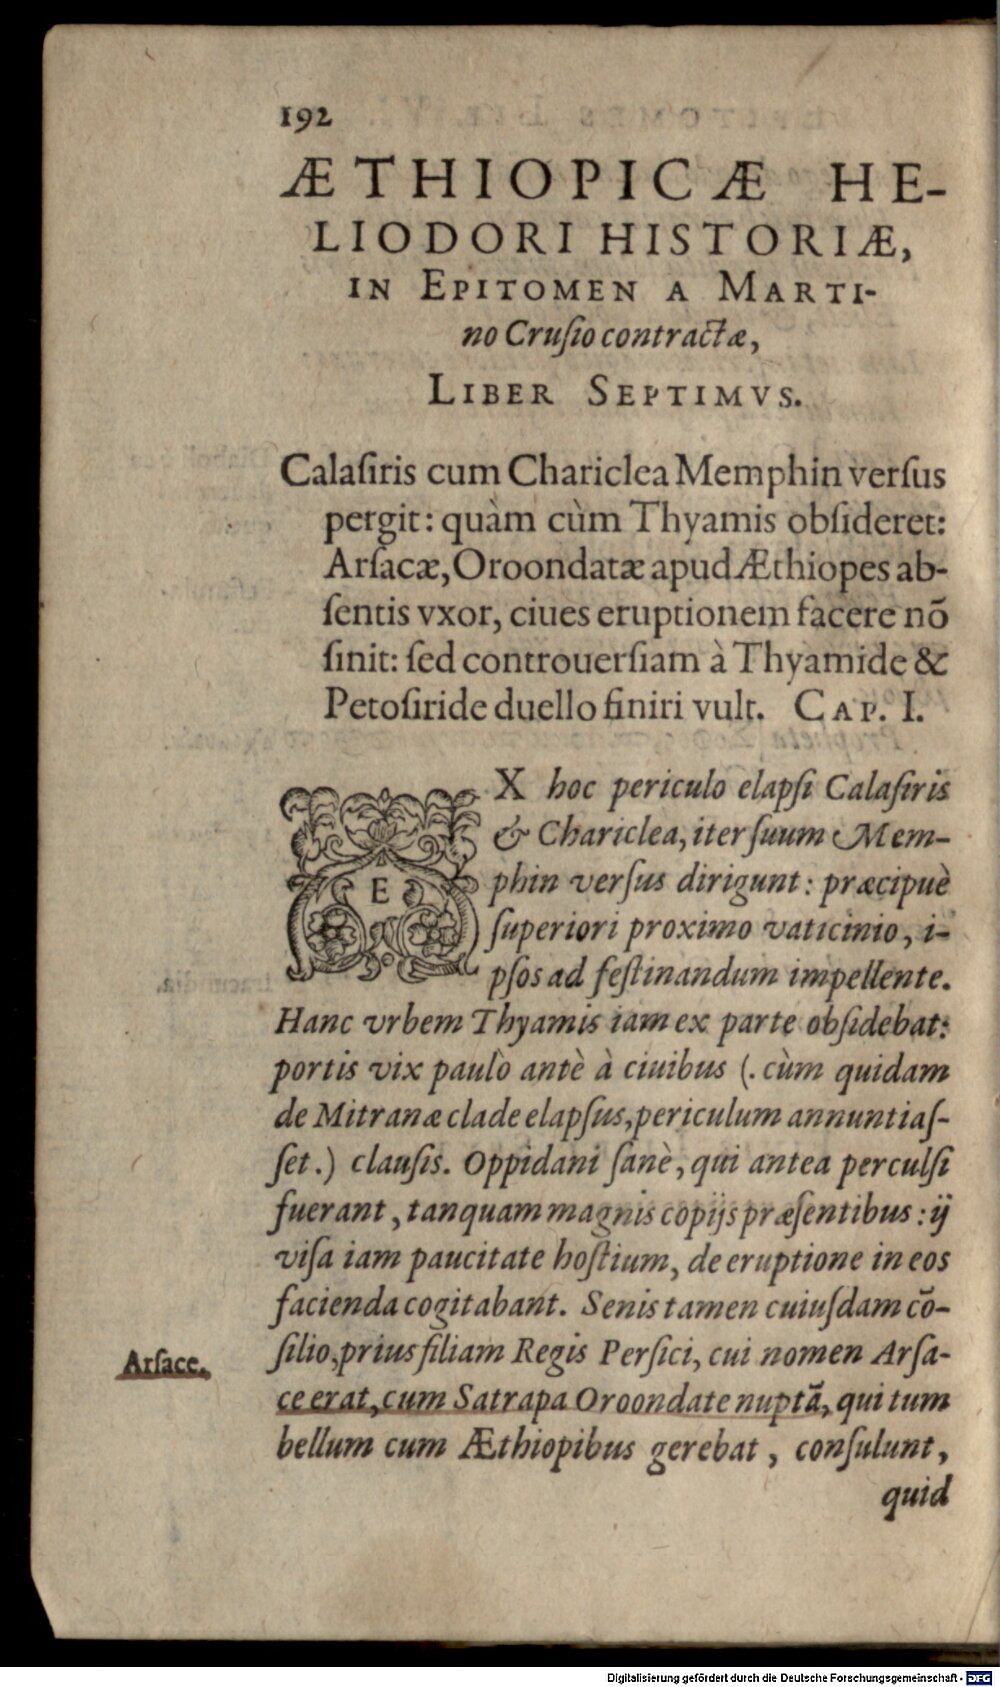 192
ÆTHIOPICÆ HE-
LIODORI HISTORIÆ,
IN EPITOMEN A MARTI-
no Cruſio contractæ,
LIBER SEPTIMVS.
Calaſiris cum Chariclea Memphin verſus
pergit: quàm cùm Thyamis obſideret:
Arſacæ, Oroondatæ apud Æthiopes ab-
ſentis vxor, ciues eruptionem facere nō
ſinit: ſed controuerſiam à Thyamide &
Petoſiride duello finiri vult. CAP. I.
EX hoc periculo elapſi Calaſiris
& Chariclea, iter ſuum Mem-
phin verſus dirigunt: præcipuè
ſuperiori proximo vaticinio, i-
pſos ad feſtinandum impellente.
Hanc vrbem Thyamis iam ex parte obſidebat:
portis vix paulò antè à ciuibus (. cùm quidam
de Mitranæ clade elapſus, periculum annuntiaſ-
ſet.) clauſis. Oppidani ſanè, qui antea perculſi
fuerant, tanquam magnis copijs præſentibus: ij
viſa iam paucitate hoſtium, de eruptione in eos
facienda cogitabant. Senis tamen cuiuſdam cō-
ſilio, prius filiam Regis Perſici, cui nomen Arſa-
Arſace.
ce erat, cum Satrapa Oroondate nuptā, qui tum
bellum cum Æthiopibus gerebat, conſulunt,
quid
Digitalisierung gefördert durch die Deutsche Forschungsgemeinschaft - DFG